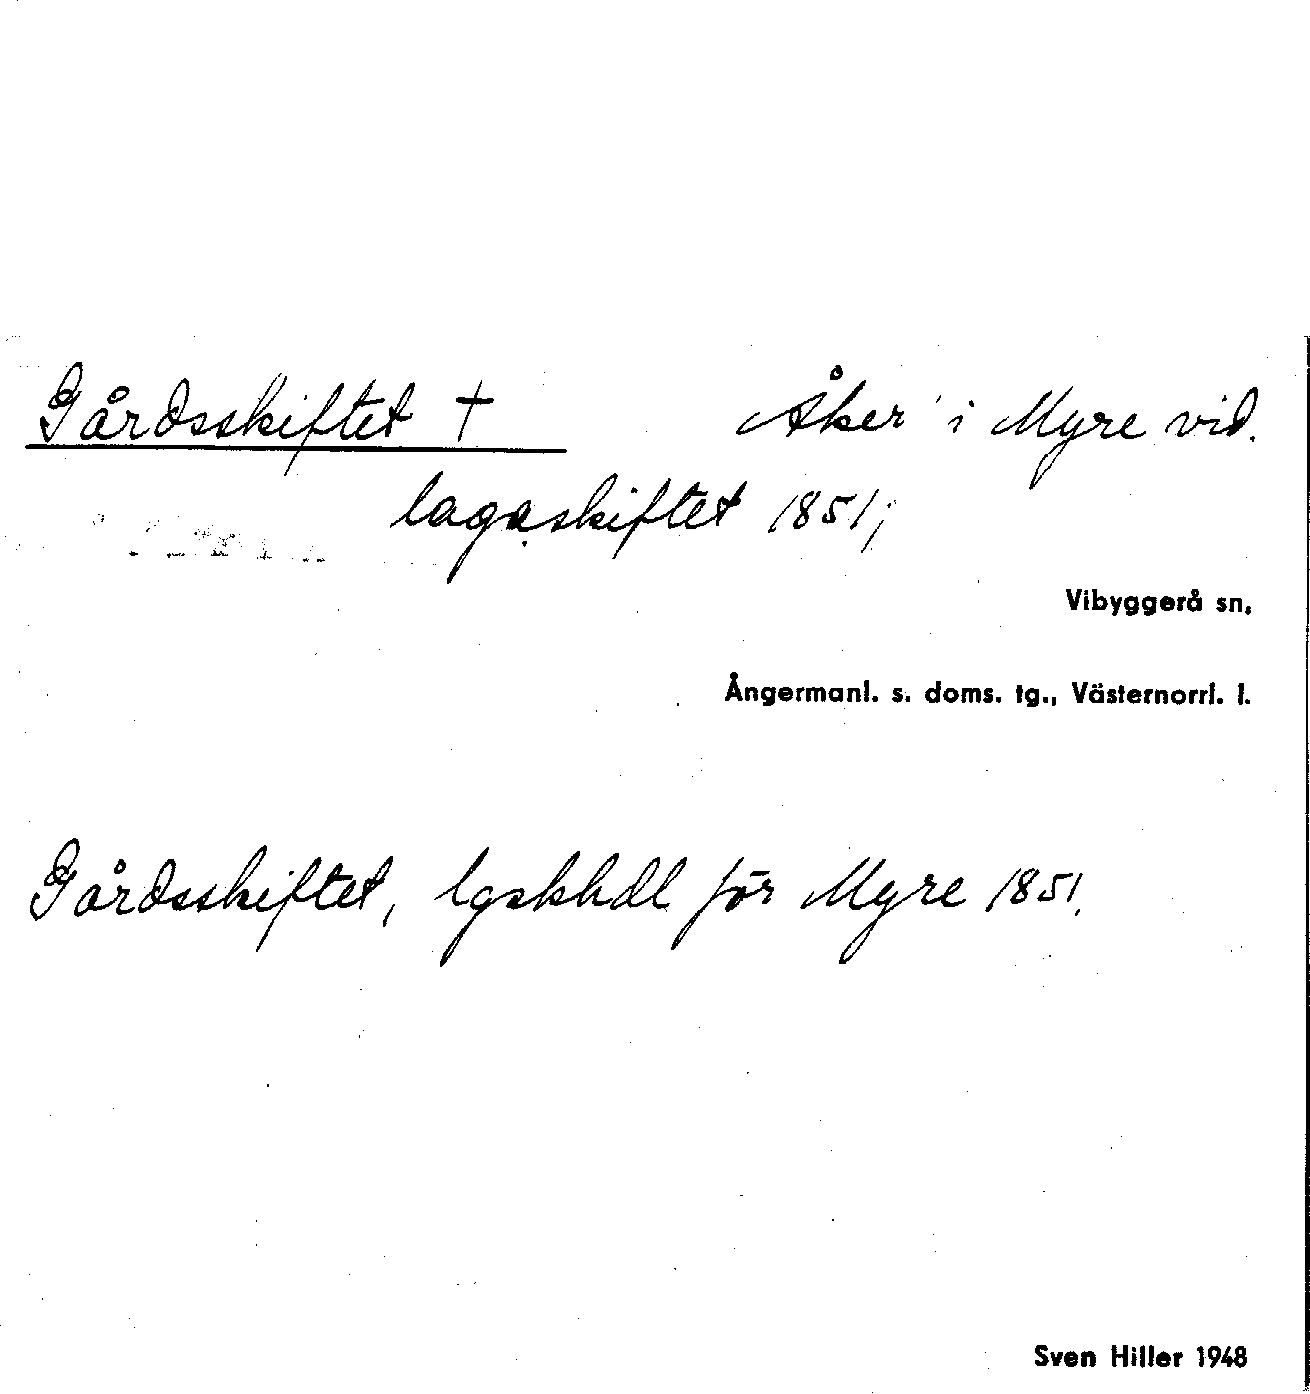 Gårdsskiftet † Åker i Myre vid
lagaskiftet 1851;
Vibyggerå sn.
Ångermanl. s. doms. tg., Västernorrl. l.
Gårdsskiftet, lgskhdl för Myre 1851.
Sven Hiller 1948